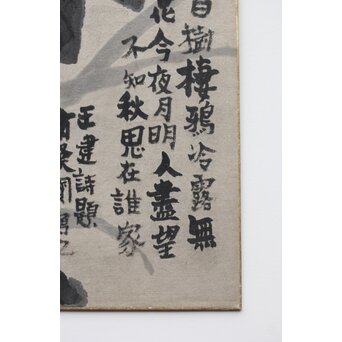 白樹棲鴉冷露無
花今夜月明人盡望
不知秋思在誰家
王建詩題